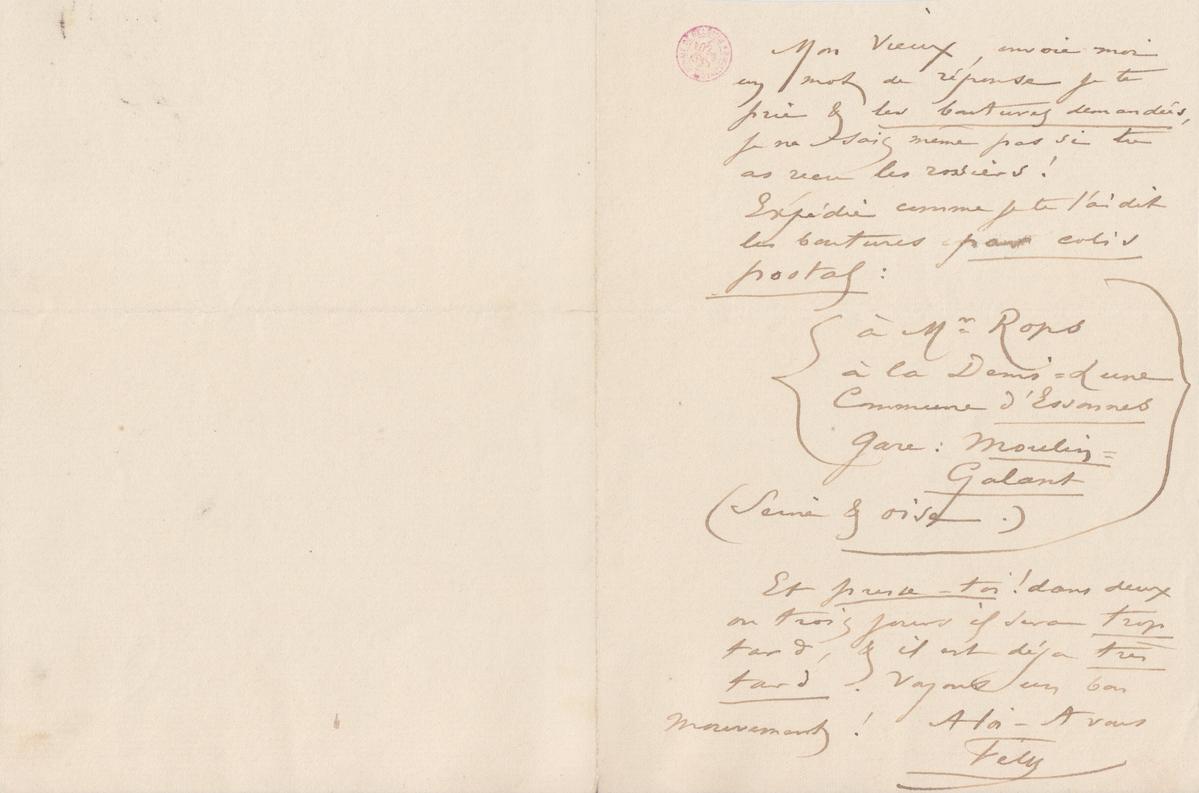 Mon Vieux, envoie moi
un mot de réponse je te
prie & les boutures demandées,
je ne sais même pas si tu
as recu les rosiers !
Expédie comme je te l'ai dit
les boutures par colis
postal :
à Mr Rops
à la Demi=Lune
Commune d'Essonnes
Gare : Moulin=
Galant
(Seine & oise .)
Et presse-toi ! dans deux
ou trois jours il sera trop
tard, & il est déja très
tard . Voyons un bon
mouvement ! A toi - A vous
Fély